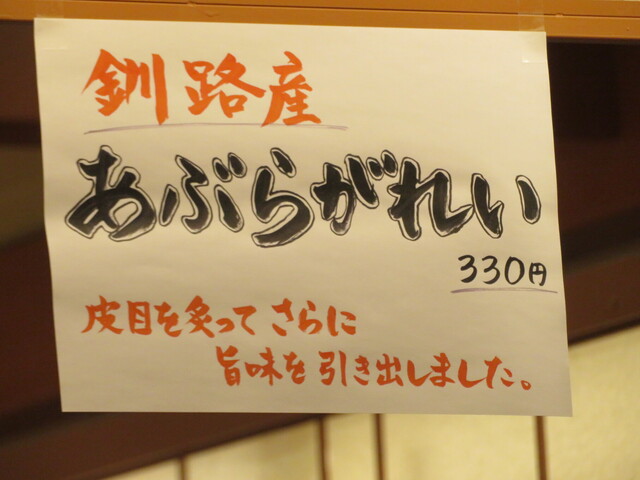 釧路産
あぶらがれい
330円
皮目を炙ってさらに
旨味を引き出しました。